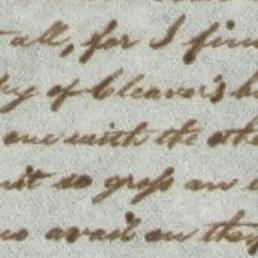 all, for I find
of Cleaver's
one with the othe
mit so gross an
no avail on they